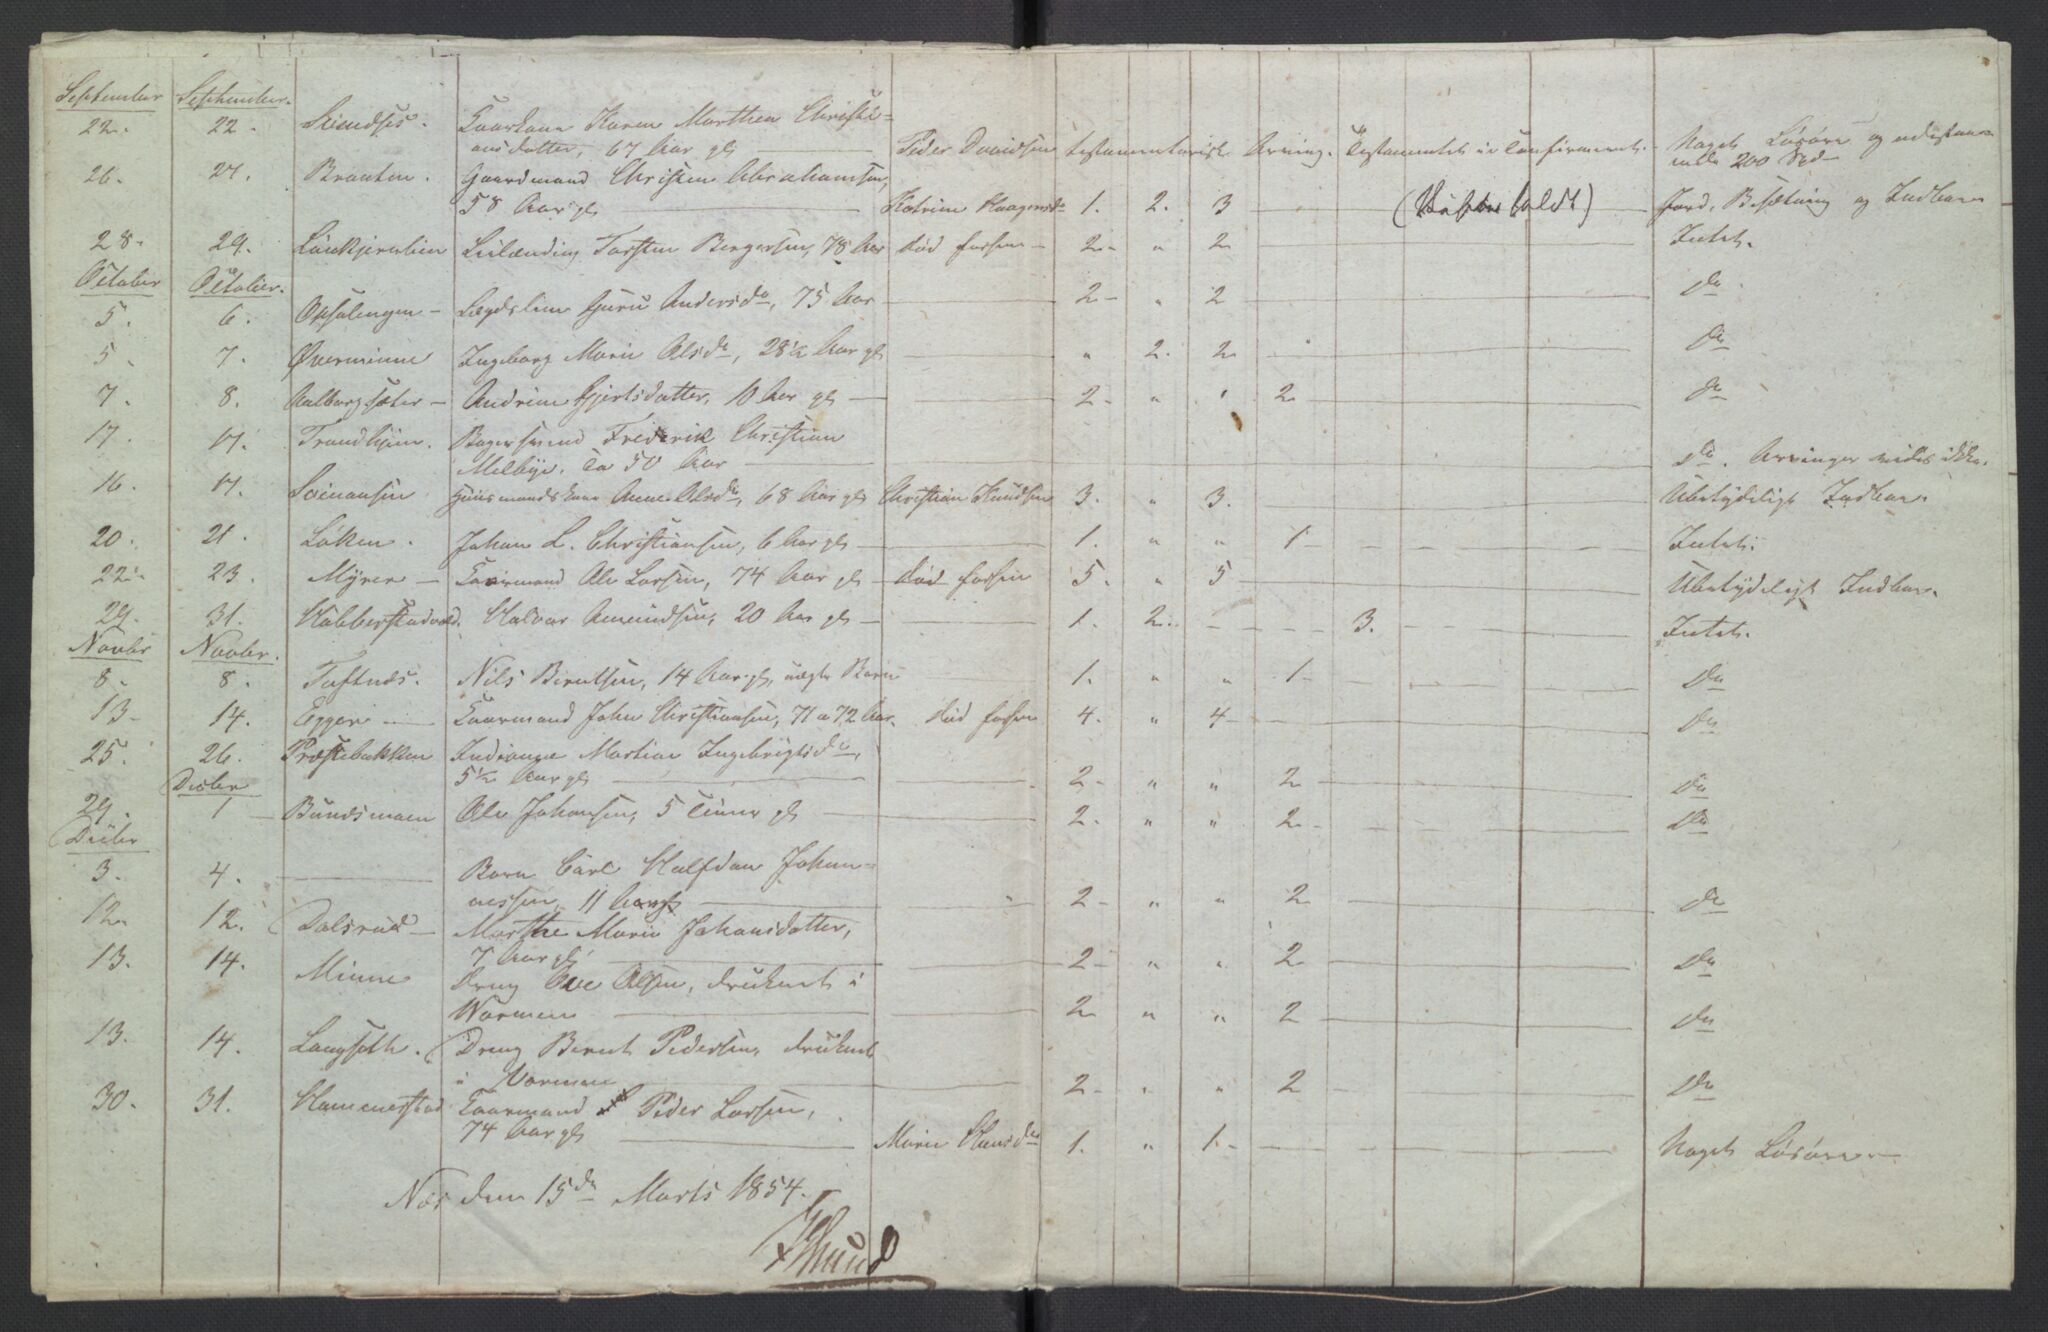 September September.
22. 22. Kaarkone Karen Marthea Christi=
ansdatter, 67 Aar gl Peder Davidsen testamentarisk Arving. Testamentet er confirmeret. Noget Løsøre og udestaaen
200 Spd
26. 27. Braaten. Gaardmand Christen Abrahamsen,
58 Aar gl Katrine Haagensd 1. 2. 3 Jord, Besætning og Indboe
28. 29. Torsten Bergersen, 78 Aar død forhen 2 " 2 Intet.
October October.
5. 6. Opsalengen Lægdslem Guru Andersdr, 75 Aar 2 " 2 Do
5. 7. Øverminne Ingeborg Marie Olsdr, 28½ Aar gl " 2. 2 Do
7. 8. Aalborgsæter Andrine Gjertsdatter, 10 Aar gl 2 " " 2 Do
17. 17. Trondhjem. Bagersvend Frederik Christian
Melbye. Ca 50 Aar Do. Arvinger vides ikke.
16. 17. Huusmandskone Anne Olsdr, 68 Aar gl Christian Knudsen 3. " 3. Ubetydeligt Indboe.
20. 21. Løken. Johan L. Christiansen, 6 Aar gl 1. " " 1 Intet.
22. 23. Myrer Kaarmand Ole Larsen, 74 Aar gl død forhen 5. " 5 Ubetydeligt Indboe.
29. 31. Habberstadvald. Halvor Amundsen, 20 Aar gl 1. 2. 3. Intet.
Novbr Novbr.
8. 8. Toftnæs. Nils Berntsen, 14 Aar gl, uægte Barn 1. " " 1 Do
13 14. Eggeri Kaarmand John Christiansen, 71 a 72 Aar. død forhen 4. " 4 Do
25. 26. Præstebakken Indianna Martine Ingebrigtsdr,
5½ Aar gl 2 " " 2 Do
Decbr
29. 1 Bundsmoen Ole Johansen, 5 Timer gl 2. " " 2 Do
Decbr
3. 4. Barn Carl Halfdan Johan=
nessen, 11 Aar gl 2 " " 2 Do
12. 12. Dalsrud Marthe Marie Johansdatter,
7 Aar gl 2 " " 2 Do
13. 14. Minne Dreng Ole Olsen, druknet i
Vormen 2 " " 2 Do
13. 14. Langseth. Dreng Bernt Pedersen, druknet
i Vormen 2 " " 2 Do
30. 31. Hammerstad Kaarmand Peder Larsen,
74 Aar gl Marie Hansdr 1. " 1. Noget Løsøre
Næs den 15de Marts 1854.